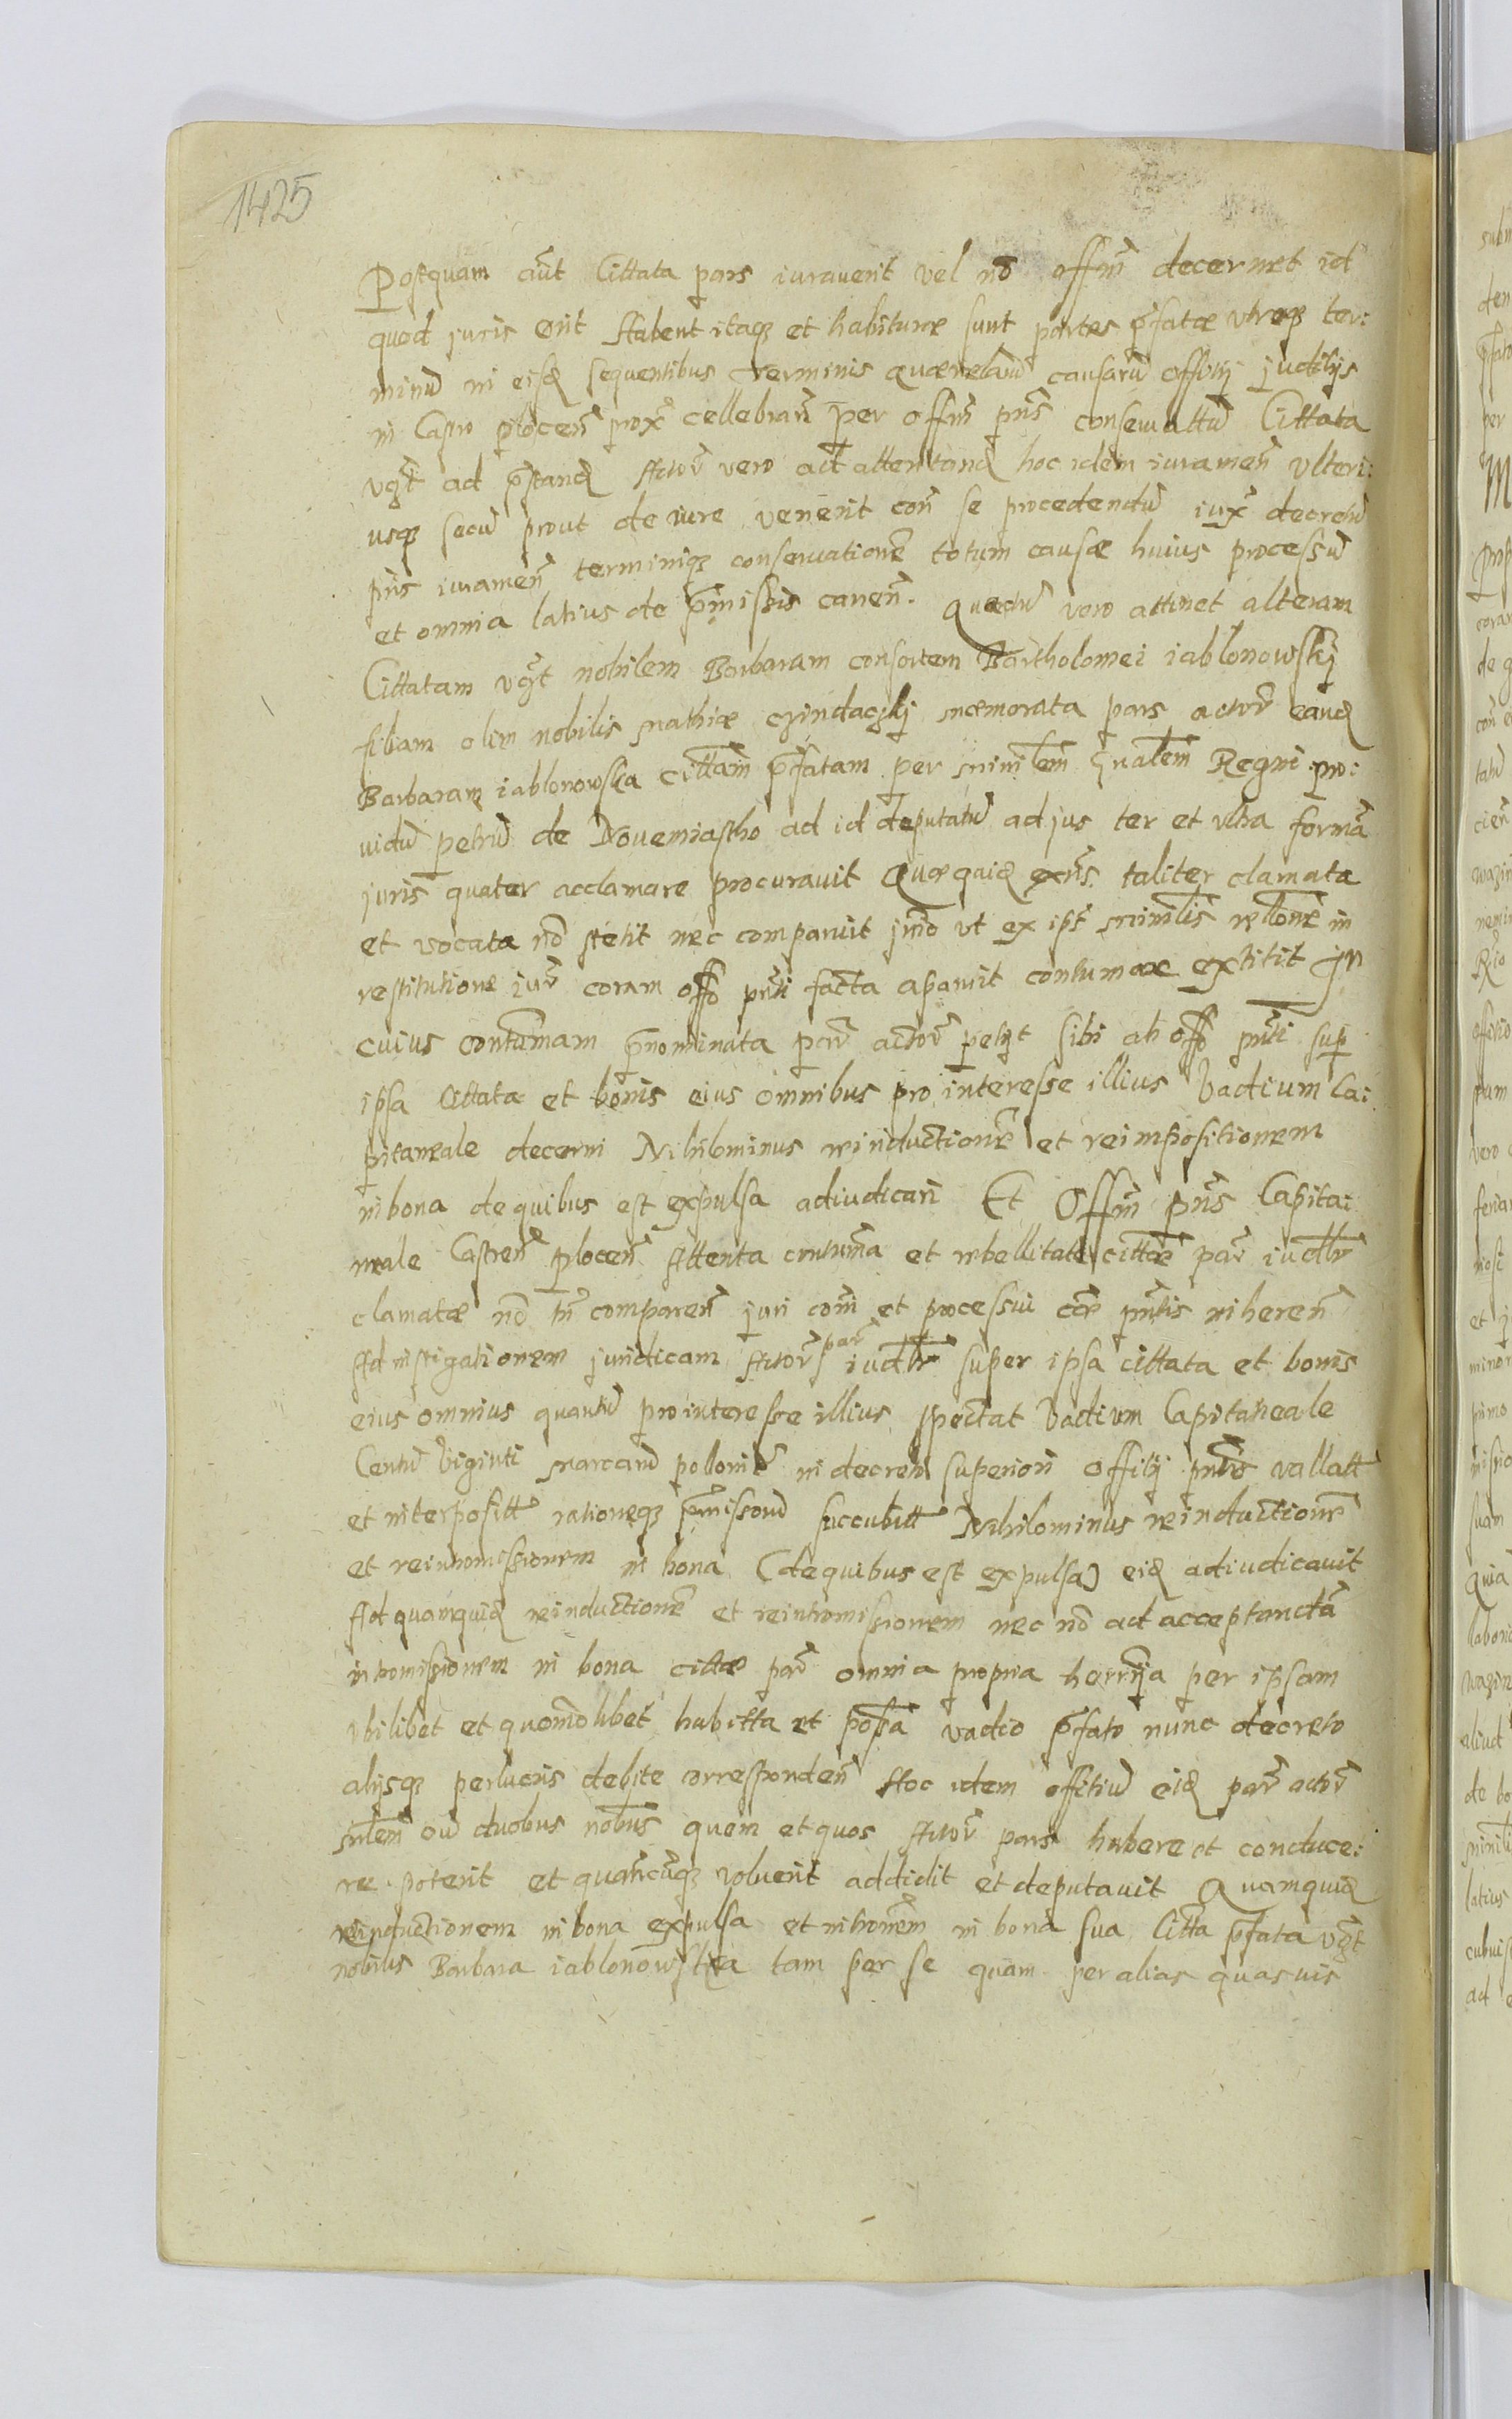 1425
Postquam aut̃ Cittata pars iuraverit vel nõ offm̃ decernet id
quod juris erit Habent itaqꝫ et habituræ sunt partes p̃fatæ vtreqꝫ ter:
minũ in eisd sequentibus terminis querelarũ causarũ Offitij juditijs
in Castro plocen̄ prox̃ cellebran̄ per offm̃ pñs conservattũ Cittata
vg̃t ad p̃stand Actor̃ vero ad attentand hoc idem iuramen̄ vlteri:
usqꝫ secũ prout de iure venerit con̄ se procedendũ iux̃ decretũ
pñs iuramen̄ terminiqꝫ conservationẽ totum causæ huius processũ
et omnia latius de p̃missis canen̄. Quantũ vero attinet alteram
Cittatam vg̃t nobilem Barbaram consortem Bartholomei iablonowskj
filiam olim nobilis Mathiæ memorata pars actor̃ eand
Barbaram iablonowska cittam̃ p̃fatam per minrlem̃ gnalem̃ Regni pro:
uidũ petrũ de Novemiastho ad id deputatũ ad jus ter et vltra formã
juris quater acclamare procuravit Quæquid exñs taliter clamata
et vocata nõ stetit nec comparuit jmõ vt ex ips̃ minrlis rellonẽ in
restitutione iur̃ coram offo pnti facta aparuit contumax extitit Jn
cuius contum̃am p̃nominata par̃ actor̃ petijt sibi ab offo pnti sup̃
ipsa Cittata et bonis eius omnibus pro interesse illius Vadium Ca:
pitaneale decerni Nihilominus reinductionẽ et reimpositionem
in bona de quibus est expulsa adiudicari Et Offm̃ pñs Capita:
neale Castren̄ plocen̄ Attenta contum̃a et rebellitate cittæ par̃ iudlr̃
clamatæ nõ tñ comparen̄ juri com̃i et processui pñtis inheren̄
Ad instigationem juridicam Actor̃ par̃ iudlr̃ super ipsa cittata et bonis
eius omnius quantũ pro interesse illius spectat Vadium Capitaneale
Centũ Viginti Marcarũ pollonic̃ in decreto superiori Offitij pñtis vallatt̃
et interposit̃t rationeqꝫ p̃missorũ succubit̃t Nihilominus reinductionẽ
et reintromissionem in bona (de quibus est expulsa) eid adiudicavit
Ad quamquid reinductionẽ et reintromissionem nec nõ ad acceptandã
intromissionem in bona cittæ par̃ omnia propria herrija per ipsam
Vbilibet et quomõlibet habitta et possa vadio p̃fato nunc decreto
alijsqꝫ perlucris debite corresponden̄ Hoc idem offitiũ eid par̃ actor̃
mrlem̃ cũ duobus nobus̃ quem et quos Actor̃ pars habere et conduce:
re poterit et quan̄cũqꝫ voluerit addidit et deputavit Quamquid
reinductionem in bona expulsa et intronem̃ in bona sua Citta p̃fata vg̃t
nobilis Barbara iablonowska tam per se quam per alias quasvis